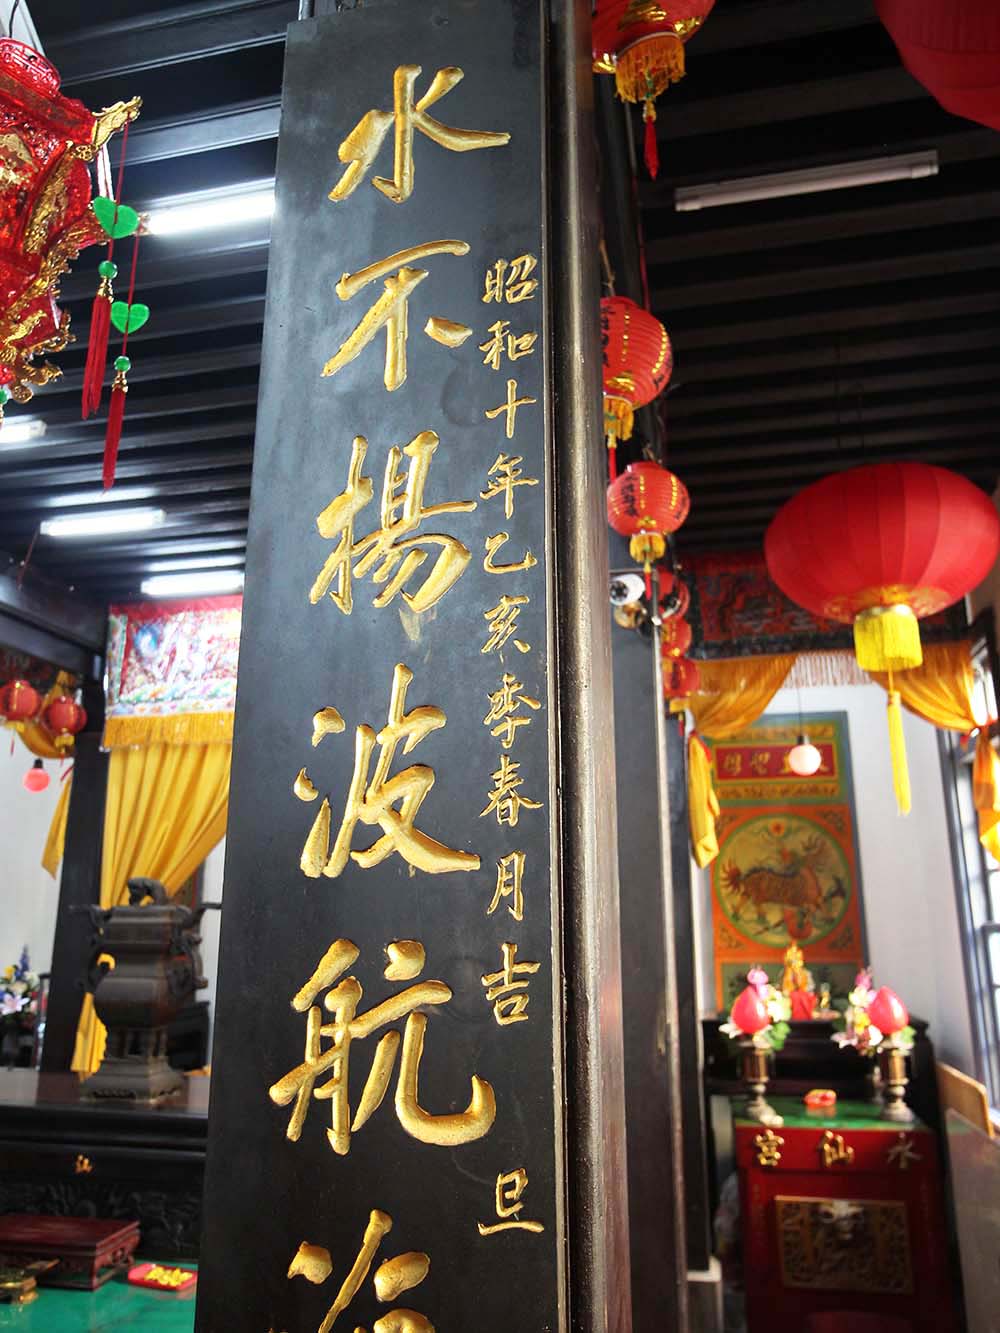 水不揚波航
昭和十年乙亥季春月吉旦
水仙宮